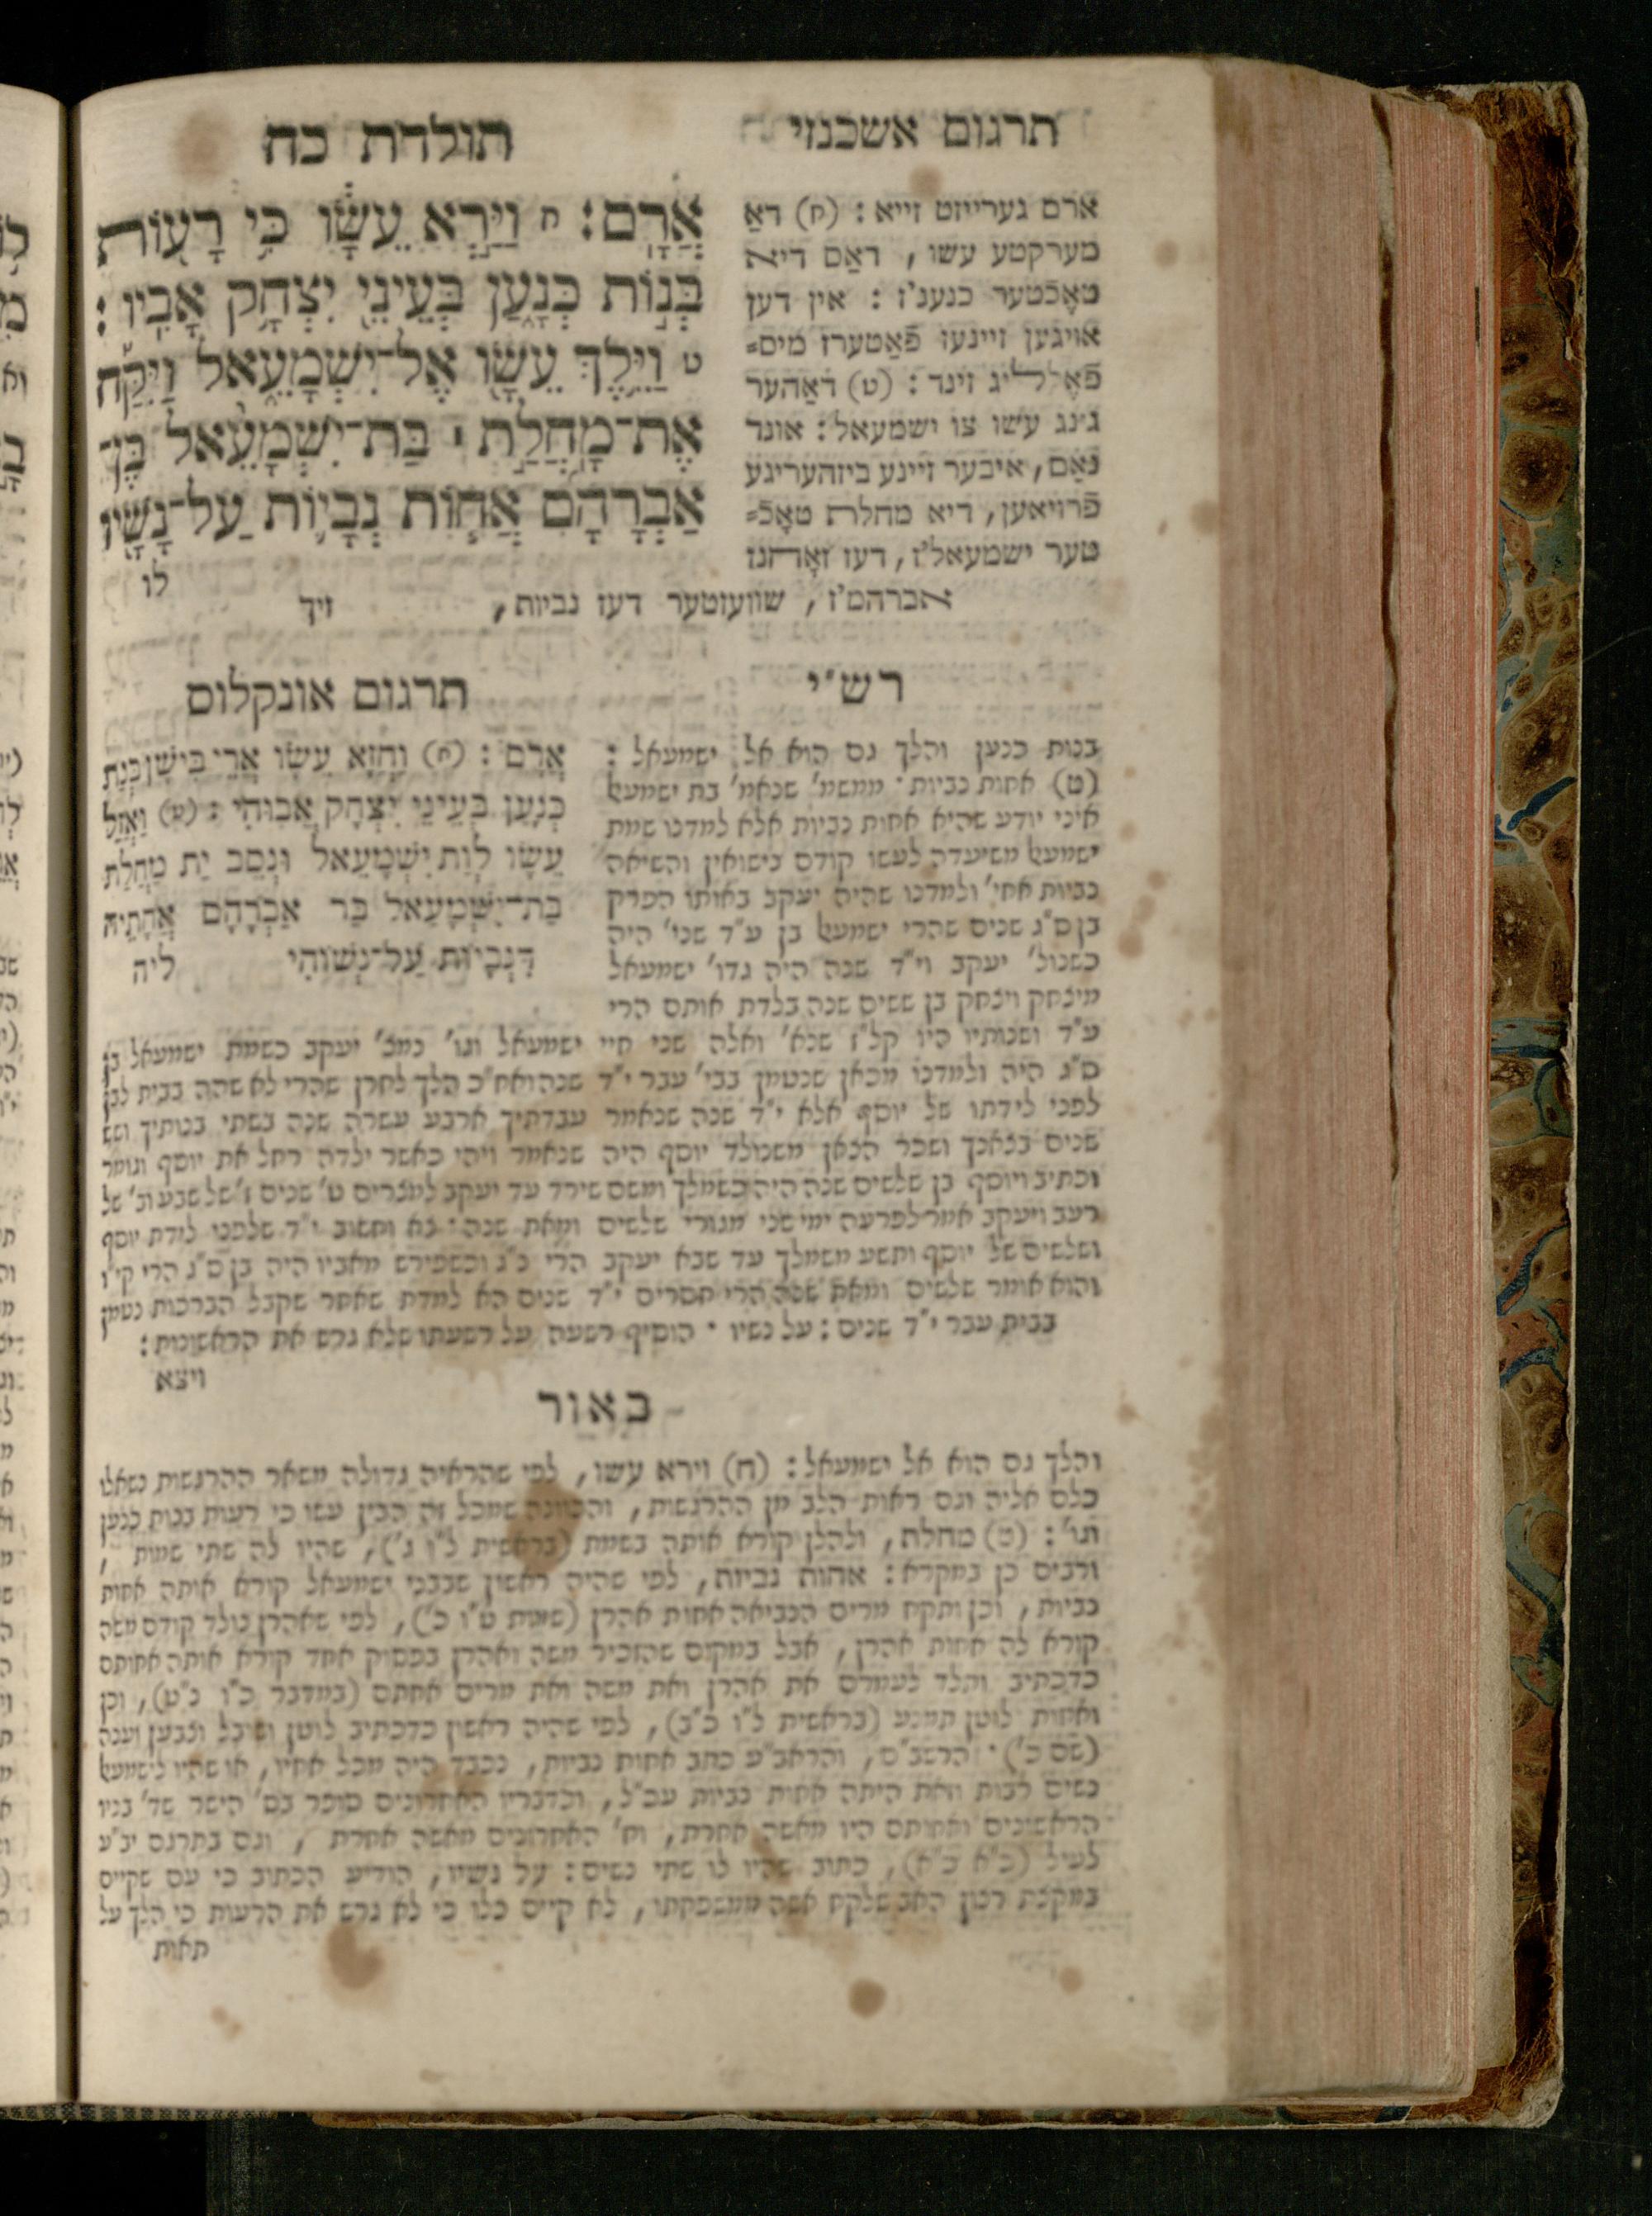 תרגום אשכנזי
תולדת כח
ארם געריזט זייא : (ח) דאַ
מערקטע עשו , דאַס דיא
טאֶכטער כנען'ז : אין דען
אויגען זיינעז פֿאַטערז מיס=
פֿאֶלליג זינד : (ט) דאַהער
גינג עשו צו ישמעאל : אונד
נאַם , איבער זיינע ביזהעריגע
פֿרויאען , דיא מחלת טאָכ=
טער ישמעאל'ז , דעז זאָהנז
אברהם'ז , שוועזטער דעז נביות ,
זיך
אֲרָֽם : ח וַיַּ֣רְא עֵשָׂ֔ו כִּ֥י רָע֖וֹת
בְּנ֣וֹת כְּנָ֑עַן בְּעֵינֵ֖י יִצְחָ֥ק אָבִֽיו :
ט וַיֵּ֥לֶךְ עֵשָׂ֖ו אֶל־יִשְׁמָעֵ֑אל וַיִּקַּ֡ח
אֶֽת־מָחֲלַ֣ת ׀ בַּת־יִשְׁמָעֵ֨אל בֶּן־
אַבְרָהָ֜ם אֲח֧וֹת נְבָי֛וֹת עַל־נָשָׁ֖יו
לו
רש״י
בנות כנען והלך גם הוא אל ישמעאל :
(ט) אחות נביות · ממשמ' שנאמ' בת ישמעאל
איני יודע שהיא אחות נביות אלא למדנו שמת
ישמעאל משיעדה לעשו קודם נישואין והשיאה
נביות אחי' ולמדנו שהיה יעקב באותו הפרק
בן ס״ג שנים שהרי ישמעאל בן ע״ד שני' היה
כשנול' יעקב וי״ד שנה היה גדו' ישמעאל
מיצחק ויצחק בן ששים שנה בלדת אותם הרי
ע״ד ושנותיו היו קל״ז שנא' ואלה שני חיי ישמעאל וגו' נמצ' יעקב כשמת ישמעאל בן
ס״ג היה ולמדנו מכאן שנטמן בבי' עבר י״ד שנה ואח״כ הלך לחרן שהרי לא שהה בבית לבן
לפני לידתו של יוסף אלא י״ד שנה שנאמר עבדתיך ארבע עשרה שנה בשתי בנותיך ושש
שנים בצאנך ושכר הצאן משנולד יוסף היה שנאמר ויהי כאשר ילדה רחל את יוסף וגומר
וכתיב ויוסף בן שלשים שנה היה כשמלך ומשם שירד עד יעקב למצרים ט' שנים ז' של שבע וב' של
רעב ויעקב אמר לפרעה ימי שני מגורי שלשים ומאת שנה · צא וחשוב י״ד שלפני לידת יוסף
ושלשים של יוסף ותשע משמלך עד שבא יעקב הרי נ״ג וכשפירש מאביו היה בן ס״ג הרי קי״ו
והוא אומר שלשים ומאת שנה הרי חסרים י״ד שנים הא למדת שאחר שקבל הברכות נטמן
בבית עבר י״ד שנים : על נשיו · הוסיף רשעה על רשעתו שלא גרש את הראשונות :
ויצא
תרגום אונקלוס
אֲרָם : (ח) וַחֲזָא עֵשָׂו אֲרֵי בִּישָׁן בְּנַת
כְּנָעַן בְּעֵינֵי יִצְחָק אֲבוּהִי : (ט) וַאֲזַל
עֵשָׂו לְוָת יִשְׁמָעֵאל וּנְסֵב יַת מָחֲלַת
בַּת־יִשְׁמָעֵאל בַּר אַבְרָהָם אֲחָתֵיהּ
דִּנְבָיוֹת עַל־נְשׁוֹהִי
ליה
באור
והלך גם הוא אל ישמעאל : (ח) וירא עשו , לפי שהראיה גדולה משאר ההרגשות נשאלו
כלם אליה וגם ראות הלב מן ההרגשות , והכוונה שמכל זה הבין עשו כי רעות בנות כנען
וגו' : (ט) מחלת , ולהלן קורא אותה בשמת (בראשית ל״ו ג') , שהיו לה שתי שמות ,
ורבים כן במקרא : אחות נביות , לפי שהיה ראשון שבבני ישמעאל קורא אותה אחות
נביות , וכן ותקח מרים הנביאה אחות אהרן (שמות ט״ו כ') , לפי שאהרן נולד קודם משה
קורא לה אחות אהרן , אבל במקום שהזכיר משה ואהרן בפסוק אחד קורא אותה אחותם
כדכתיב ותלד לעמרם את אהרן ואת משה ואת מרים אחתם (במדבר כ״ו נ״ט) , וכן
ואחות לוטן תמנע (בראשית ל״ו כ״ב) , לפי שהיה ראשון כדכתיב לוטן ושובל וצבעון וענה
(שם כ') · הרשב״ם , והראב״ע כתב אחות נביות , נכבד היה מכל אחיו , או שהיו לישמעאל
נשים רבות וזאת היתה אחות נביות עכ״ל , וכדבריו האחרונים סופר בס' הישר שד' בניו
הראשונים ואחותם היו מאשה אחרת , וח' האחרונים מאשה אחרת , וגם בתרגם יב״ע
לעיל (כ״א כ״א) , כתוב שהיו לו שתי נשים : על נשיו , הודיע הכתוב כי עם שקיים
במקצת רצון האב שלקח אשה ממשפחתו , לא קיים כלו כי לא גרש את הרעות כי הלך על
תאות